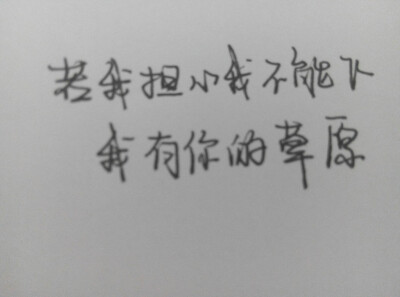 若我担小我不能下
我有你的草原